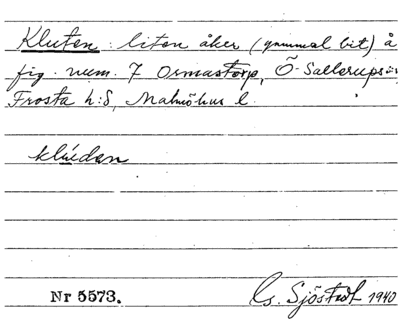 Kluten: liten åker (gammal bit) å
fig. num. 7 Ormastorp, Ö. Sallerups sn
Frosta h:d, Malmöhus l.
klúdan
Nr 5573.
G. Sjöstedt 1940